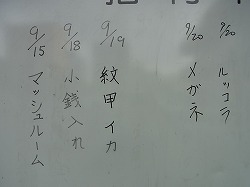 9/20 ルッコラ
9/20 メガネ
9/19 紋甲イカ
9/18 小銭入れ
9/15 マッシュルーム